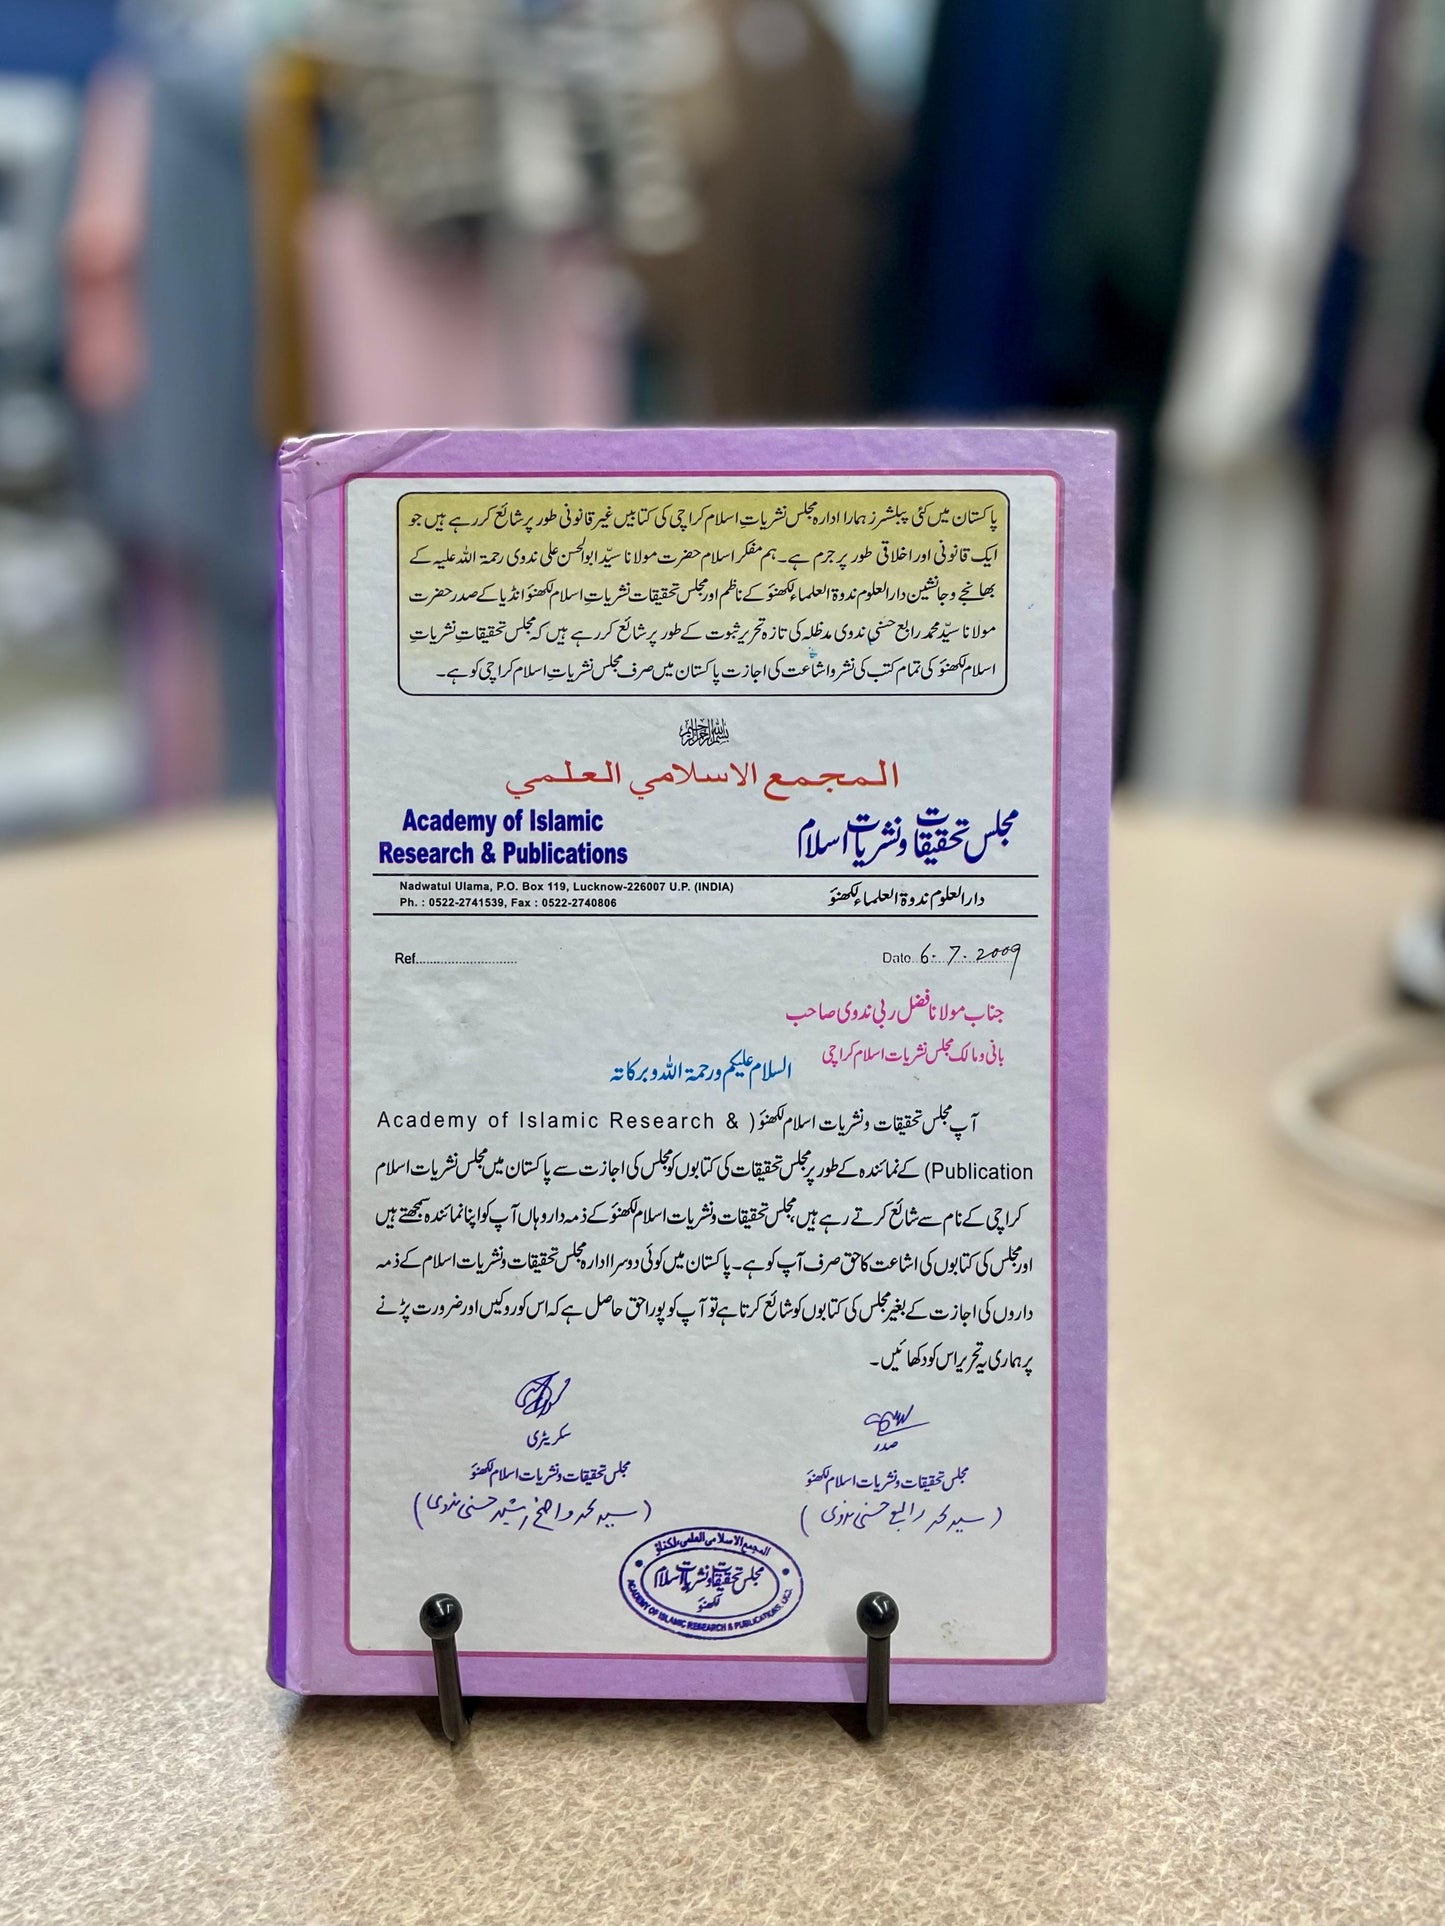 پاکستان میں کئی پبلشرز ہمارا ادارہ مجلس نشریاتِ اسلام کراچی کی کتابیں غیر قانونی طور پر شائع کر رہے ہیں جو
ایک قانونی اور اخلاقی طور پر جرم ہے۔ ہم مفکر اسلام حضرت مولانا سیّد ابوالحسن علی ندوی رحمۃ اللہ علیہ کے
بھانجے و جانشین دارالعلوم ندوۃ العلماء لکھنؤ کے ناظم اور مجلس تحقیقات نشریاتِ اسلام لکھنؤ انڈیا کے صدر حضرت
مولانا سیّد محمد رابع حسنی ندوی مدظلہ کی تازہ تحریر ثبوت کے طور پر شائع کر رہے ہیں کہ مجلس تحقیقاتِ نشریاتِ
اسلام لکھنؤ کی تمام کتب کی نشر و اشاعت کی اجازت پاکستان میں صرف مجلس نشریاتِ اسلام کراچی کو ہے۔
بسم الله الرحمن الرحيم
المجمع الاسلامي العلمي
Academy of Islamic
Research & Publications
مجلس تحقیقات و نشریات اسلام
Nadwatul Ulama, P.O. Box 119, Lucknow-226007 U.P. (INDIA)
Ph. : 0522-2741539, Fax : 0522-2740806
دارالعلوم ندوۃ العلماء لکھنؤ
Ref..........................
Date. 6. 7. 2009
جناب مولانا فضل ربی ندوی صاحب
بانی و مالک مجلس نشریات اسلام کراچی
السلام علیکم ورحمۃ اللہ وبرکاتہ
آپ مجلس تحقیقات و نشریات اسلام لکھنؤ ( Academy of Islamic Research &
Publication) کے نمائندہ کے طور پر مجلس تحقیقات کی کتابوں کو مجلس کی اجازت سے پاکستان میں مجلس نشریات اسلام
کراچی کے نام سے شائع کرتے رہے ہیں، مجلس تحقیقات و نشریات اسلام لکھنؤ کے ذمہ دار وہاں آپ کو اپنا نمائندہ سمجھتے ہیں
اور مجلس کی کتابوں کی اشاعت کا حق صرف آپ کو ہے۔ پاکستان میں کوئی دوسرا ادارہ مجلس تحقیقات و نشریات اسلام کے ذمہ
داروں کی اجازت کے بغیر مجلس کی کتابوں کو شائع کرتا ہے تو آپ کو پورا حق حاصل ہے کہ اس کو روکیں اور ضرورت پڑنے
پر ہماری یہ تحریر اس کو دکھائیں۔
صدر
مجلس تحقیقات و نشریات اسلام لکھنؤ
(سید محمد رابع حسنی ندوی)
سکریٹری
مجلس تحقیقات و نشریات اسلام لکھنؤ
(سید محمد واضح رشید حسنی ندوی)
المجمع الاسلامی العلمی، لکناؤ
مجلس تحقیقات و نشریات اسلام
لکھنؤ
ACADEMY OF ISLAMIC RESEARCH & PUBLICATIONS,